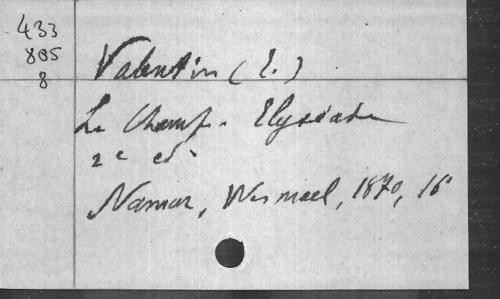 433
885
8
Valentin (E.)
Le Champ. Elyséate
2e ed.
Namur, Wesmael, 1870, 16°